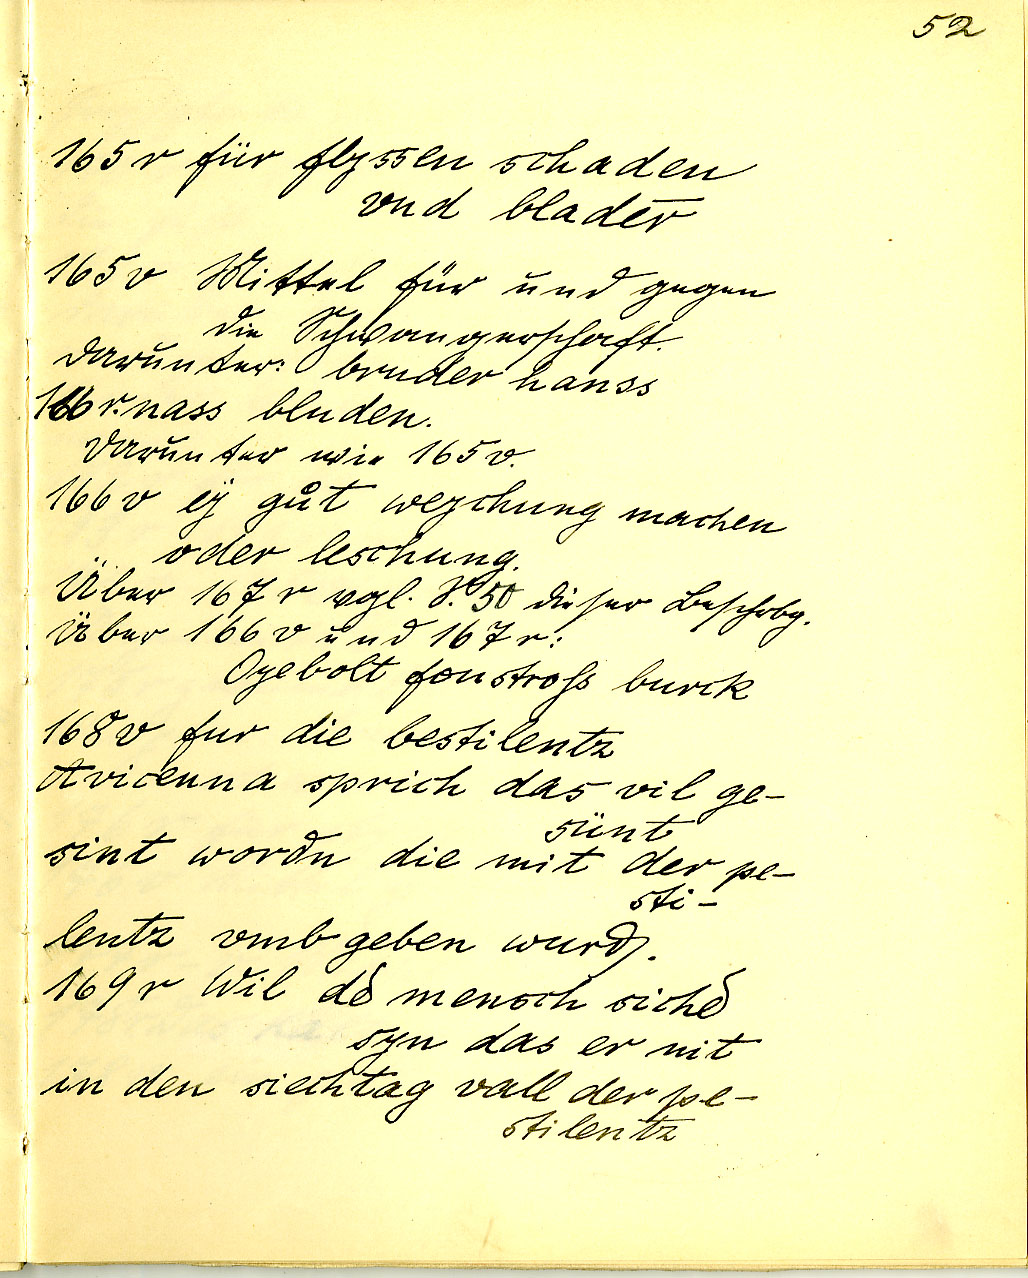 52
165r für flyssen schaden
vnd blader̄
165v Mittel für und gegen
die Schwangerschaft.
Darunter: bruder hanss
166r. nass bluden.
Darunter wie 165v.
166v eÿ gůt weychung machen
oder leschung.
Über 167r vgl. S. 50 dieser Beschrbg.
Über 166v und 167r:
Ogebolt fon stroſs burck
168v fur die bestilentz
Avicenna sprich das vil ge-
sünt
sint wordn die mit der pe-
sti-
lentz vmb geben wurd.
169r Wil de mensch siche
syn das er nit
in den siechtag vall der pe-
stilentz